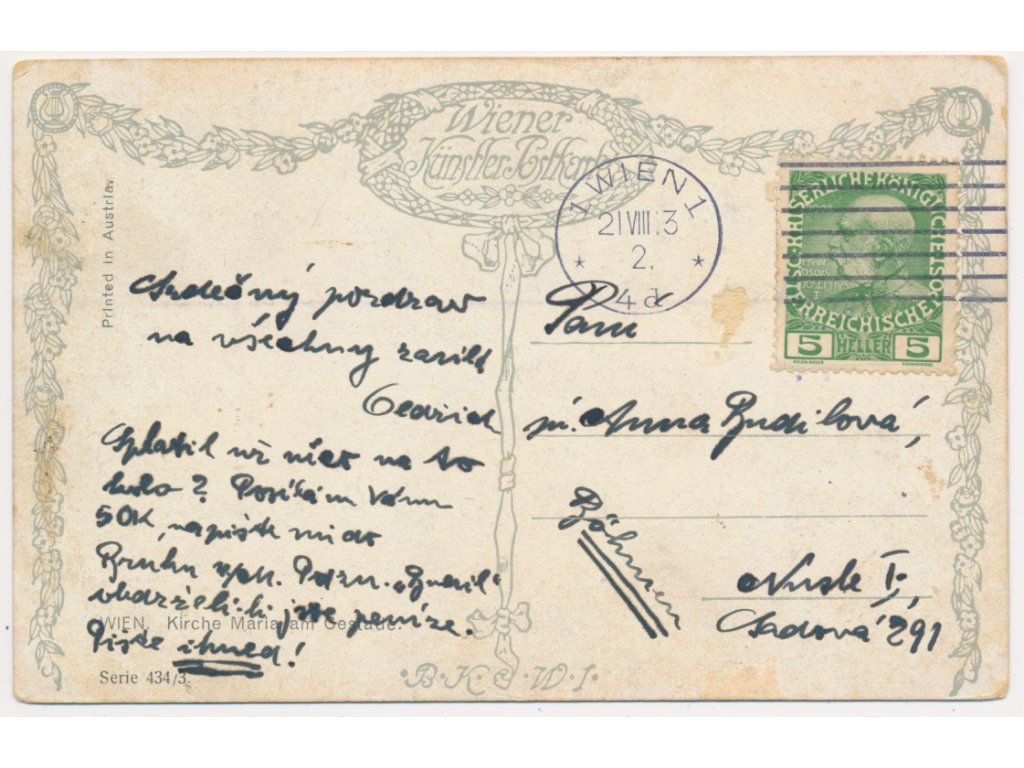 Wiener
Künstler-Postkarte
Printed in Austria.
WIEN 1
21 VIII 13
2.
* *
4d
KAISERLICHE KÖNIGLICHE ÖSTERREICHISCHE POST
FRANCISCUS
JOSEPHUS
I
5 HELLER 5
Srdečný pozdrav
na všechny zasílá
Bedřich
Splatil už něco na to
kolo? Posílám Vám
50K, napište mi do
Brucku
obdrželi-li jste peníze.
Pište ihned!
Paní
pí. Anna Budilová,
Böhmen
Nusle I.,
Sadová 291
WIEN. Kirche Maria am Gestade.
Serie 434/3.
·B·K·W·I·